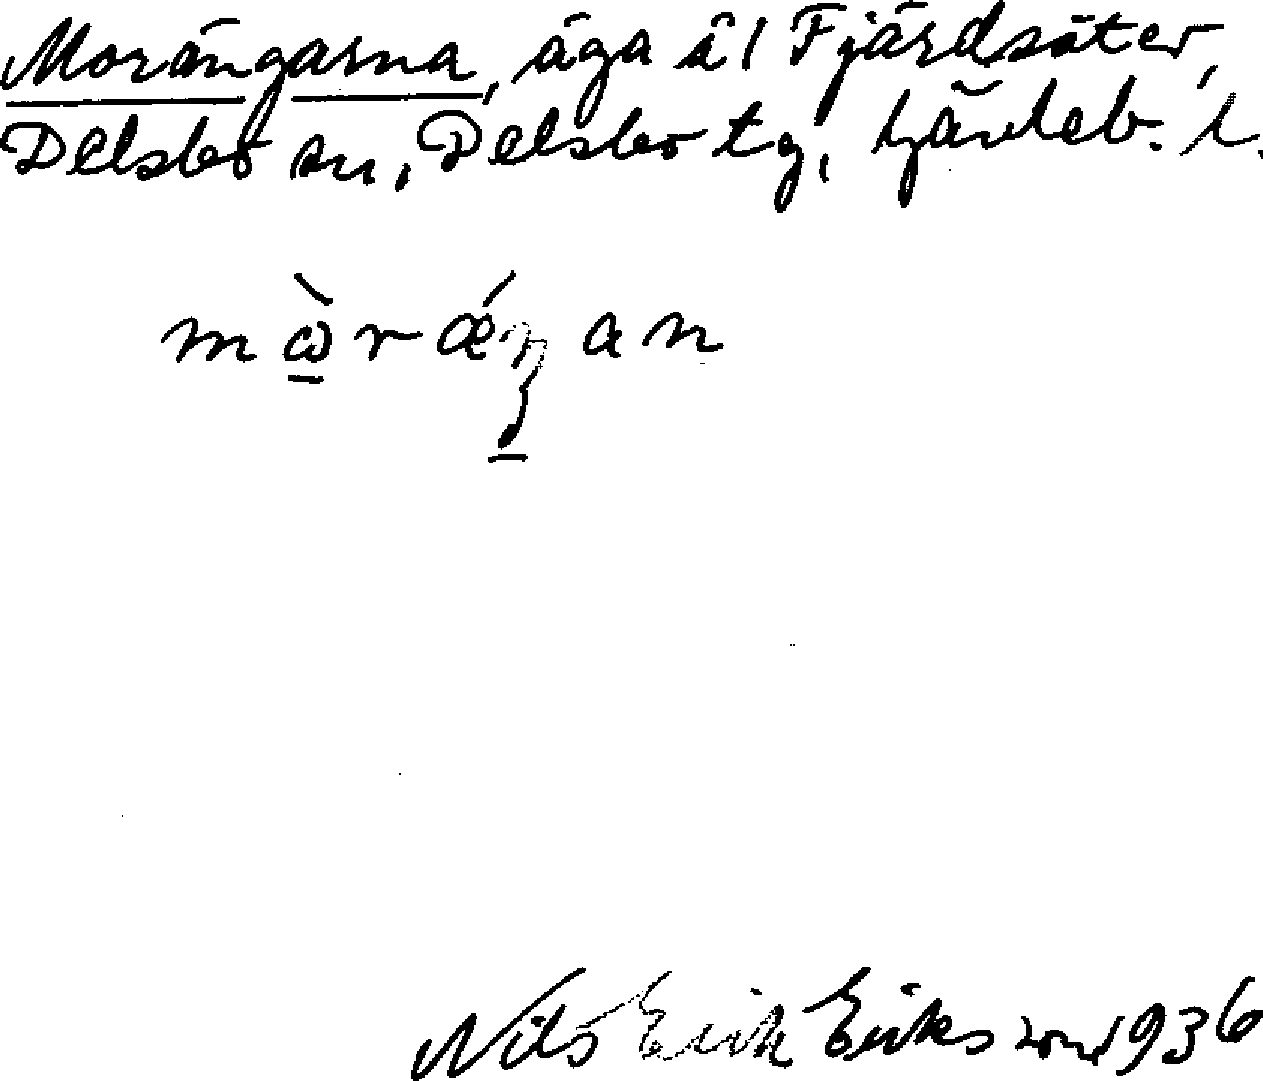 Morängarna, äga å 1 Fjärdsäter,
Delsbo sn, Delsbo tg, Gävleb. l.
mὼ̱rǽŋ̱an
Nils Erik Eriksson 1936